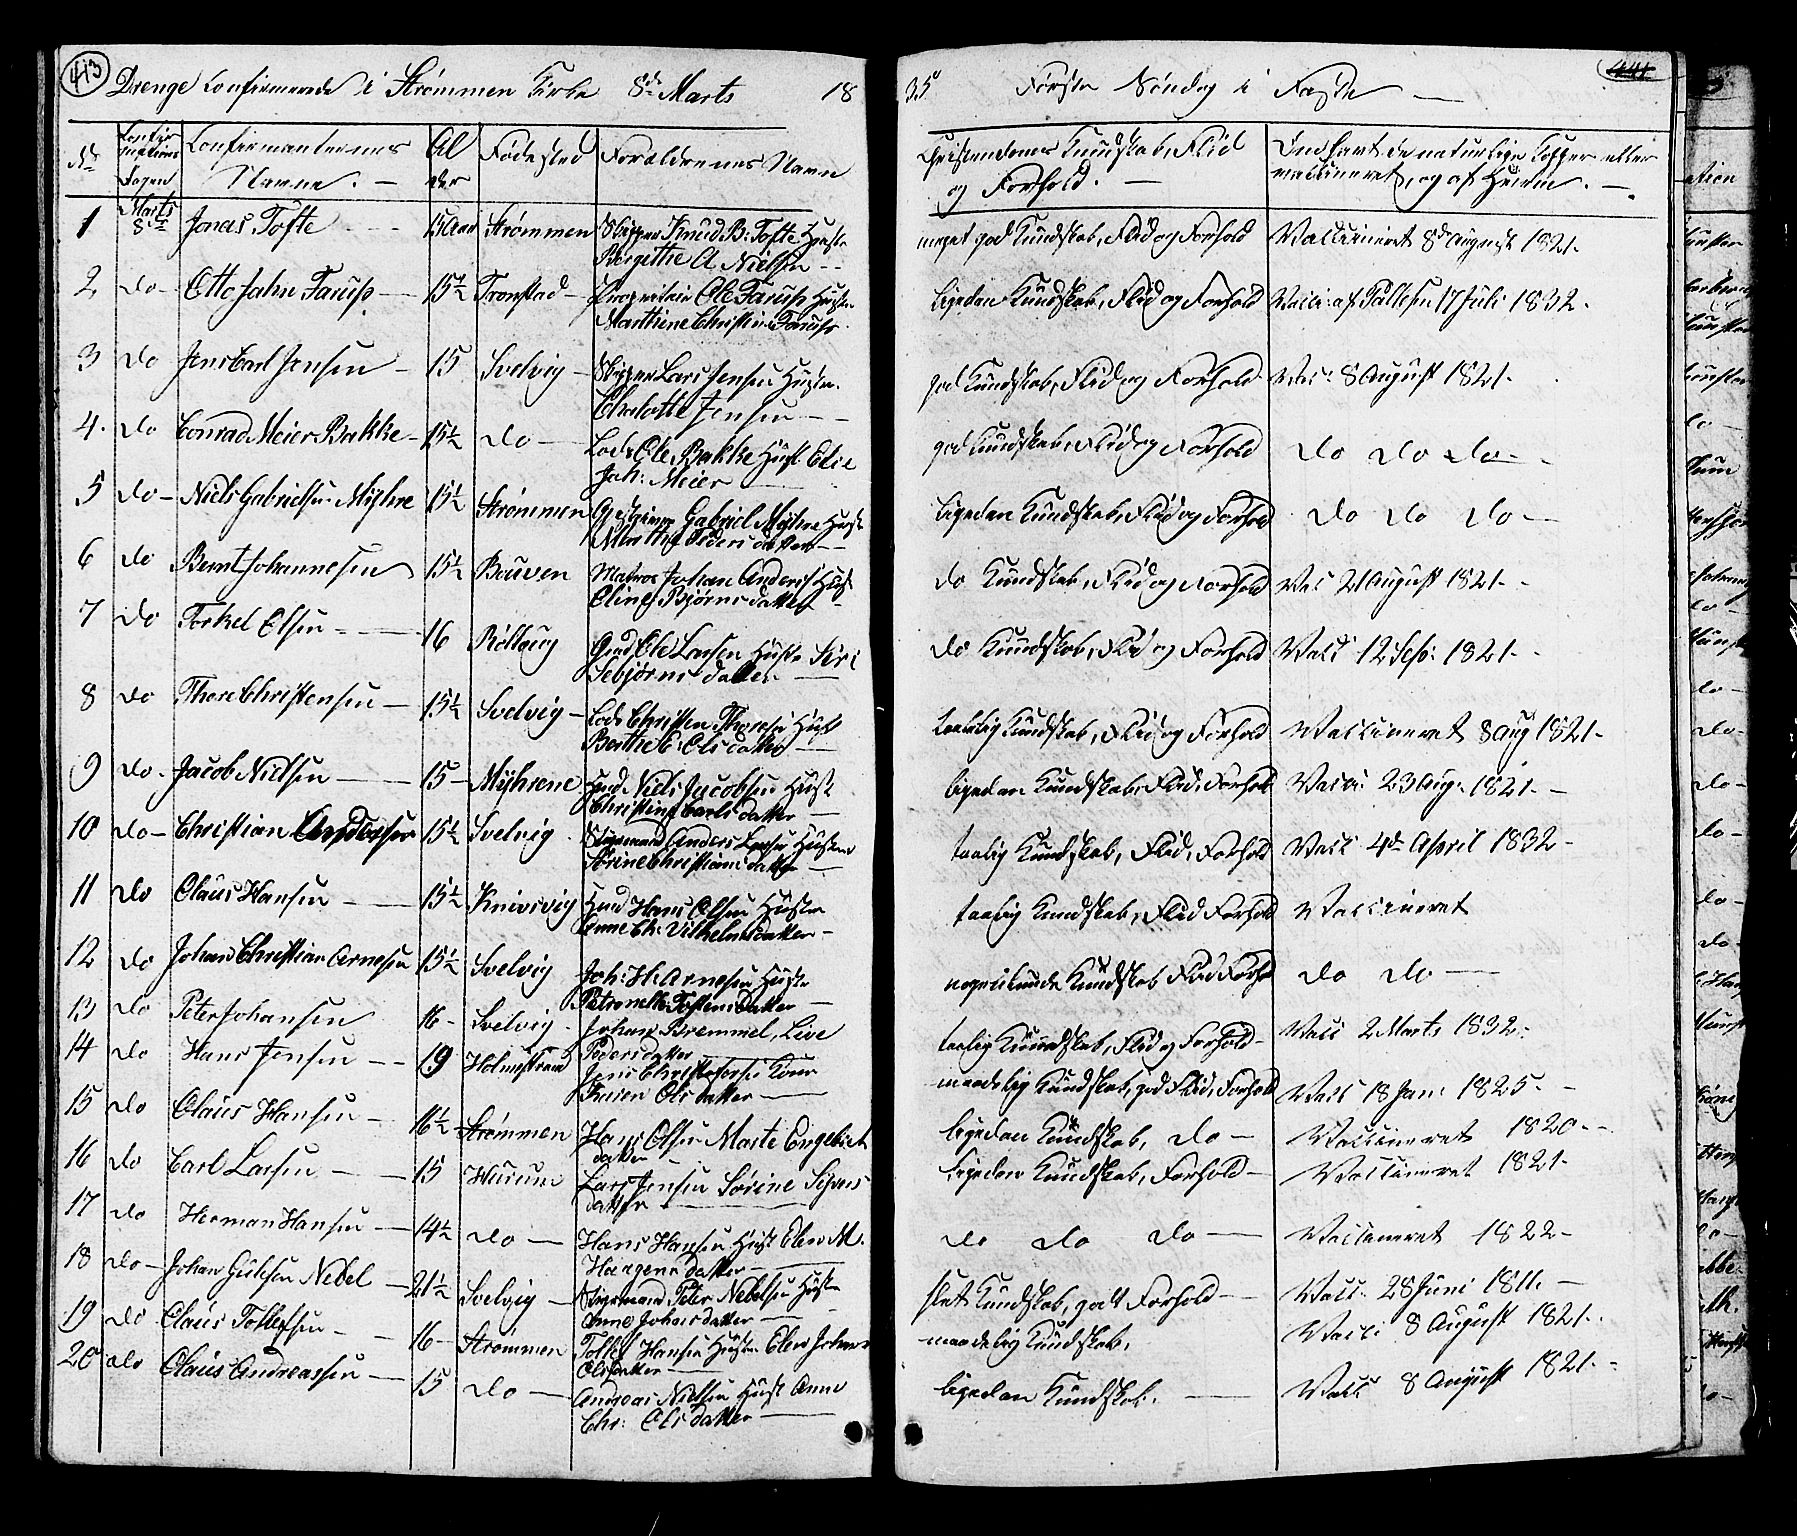 413
Drenge Confirmerede i Strømmen Kirke 8de Marts 18
35 Første Søndag i Faste
441
No
Confirmations Dagen
Confirmanternes Navne.
Alder
Fødested
Forældrenes Navn
Christendoms Kundskab, Flid og Forhold.
Om havt de naturlige Kopper eller vaccineret, og af Hvem.
1 Marts 8de Jonas Tofte 15 Aar Strømmen Skipper Knud B. Tofte Hustr
Bergitthe A. Nielsen
meget god Kundskab, Flid og Forhold Vaccineret 8de August 1821
2 do Otto Jahn Faruss 15½ Tronstad Proprietair Ole Faruss Hustr
Marthine Christine Faruss
ligedan Kundskab, Flid og Forhold Vacci: af Tollefsen 17 Juli 1832
3 do Jens Carl Jensen 15 Svelvig Skipper Lars Jensen Hustr.
Charlotte Jensen
god Kundskab, Flid og Forhold Vac: 8 August 1821
4 do Conrad Meier Bakke 15½ do Lods Ole Bakke Hust Elie
Joh: Meier
god Kundskab, Flid og Forhold do do do
5 do Niels Gabrielsen Myhre 15½ Strømmen Gabriel Myhre Hust
Marthe Pedersdatter
ligedan Kundskab, Flid og Forhold do do do
6 do Bernt Johannesen 15½ Bouven Matros Johan Anders Hust
Eline Bjørnsdatter
do Kundskab, Flid og Forhold Vac 21 August 1821
7 do Torkel Olsen 16 Gmd Ole Larsen Hustr Siri
Sebjørnsdatter
do Kundskab, Flid og Forhold Vacc 12 Sep: 1821
8 do Thore Christensen 15½ Svelvig Lods Christen Thoresen Hust
Berthe E. Olsdatter
taalelig Kundskab, Flid og Forhold Vaccineret 8 Aug 1821
9 do Jacob Nielsen 15 Myhrene Huusmd Niels Jacobsen Hust
Christine Carlsdatter
ligedan Kundskab, Flid, Forhold Vacci 23 Aug: 1821
10 do Christian Andersen 15½ Svelvig Styrmand Anders Larsen Hustru
Sørine Christiansdatter
taalig Kundskab, Flid, Forhold Vacc 4de April 1832
11 do Claus Hansen 15½ Knivsvig Huusmd Hans Olsen Hustru
Anne Ch: Vilhelmsdatter
taalig Kundskab, Flid Forhold Vaccineret
12 do Johan Christian Arnesen 15½ Svelvig Joh: H. Arnesen Hustr
Petronelle Tostensdatter
nogenlunde Kundskab Flid Forhold do do
13 do Peter Johansen 16 Svelvig Johan Bremmel, Live
Pedersdatter
taalig Kundskab, Flid og Forhold Vacc 2 Marts 1832
14 do Hans Jensen 19 Holmestrand Jens Christophersen Kone
Karen Olsdatter
maadelig Kundskab, god Flid, Forhold Vacc 18 Jan: 1825
15 do Claus Hansen 16½ Strømmen Hans Olsen Marte Engebrets
datter
ligedan Kundskab, do Vaccineret 1820
16 do Carl Larsen 15 Hurum Lars Jensen Sørine Sivers
datter
ligedan Kundskab, Forhold Vaccineret 1821
17 do Herman Hansen 14½ do Hans Hansen Hust Elen M.
Haagensdatter
do do do Vaccineret 1822
18 do Johan Gulesen Nebel 21½ Svelvig Styrmand Peter Nebelsen Hustr
Anne Johansdatter
slet Kundskab, godt Forhold Vacc. 28 Juni 1811
19 do Claus Tollefsen 16 Strømmen Tollef Hansen Hustr Elen Johanne
Olsdatter
maadelig Kundskab, Vacci 8 August 1821
20 do Claus Andreassen 15 do Andreas Nielsen Hust Anne
Chr: Olsdatter
ligedan Kundskab. Vacc 8 August 1821